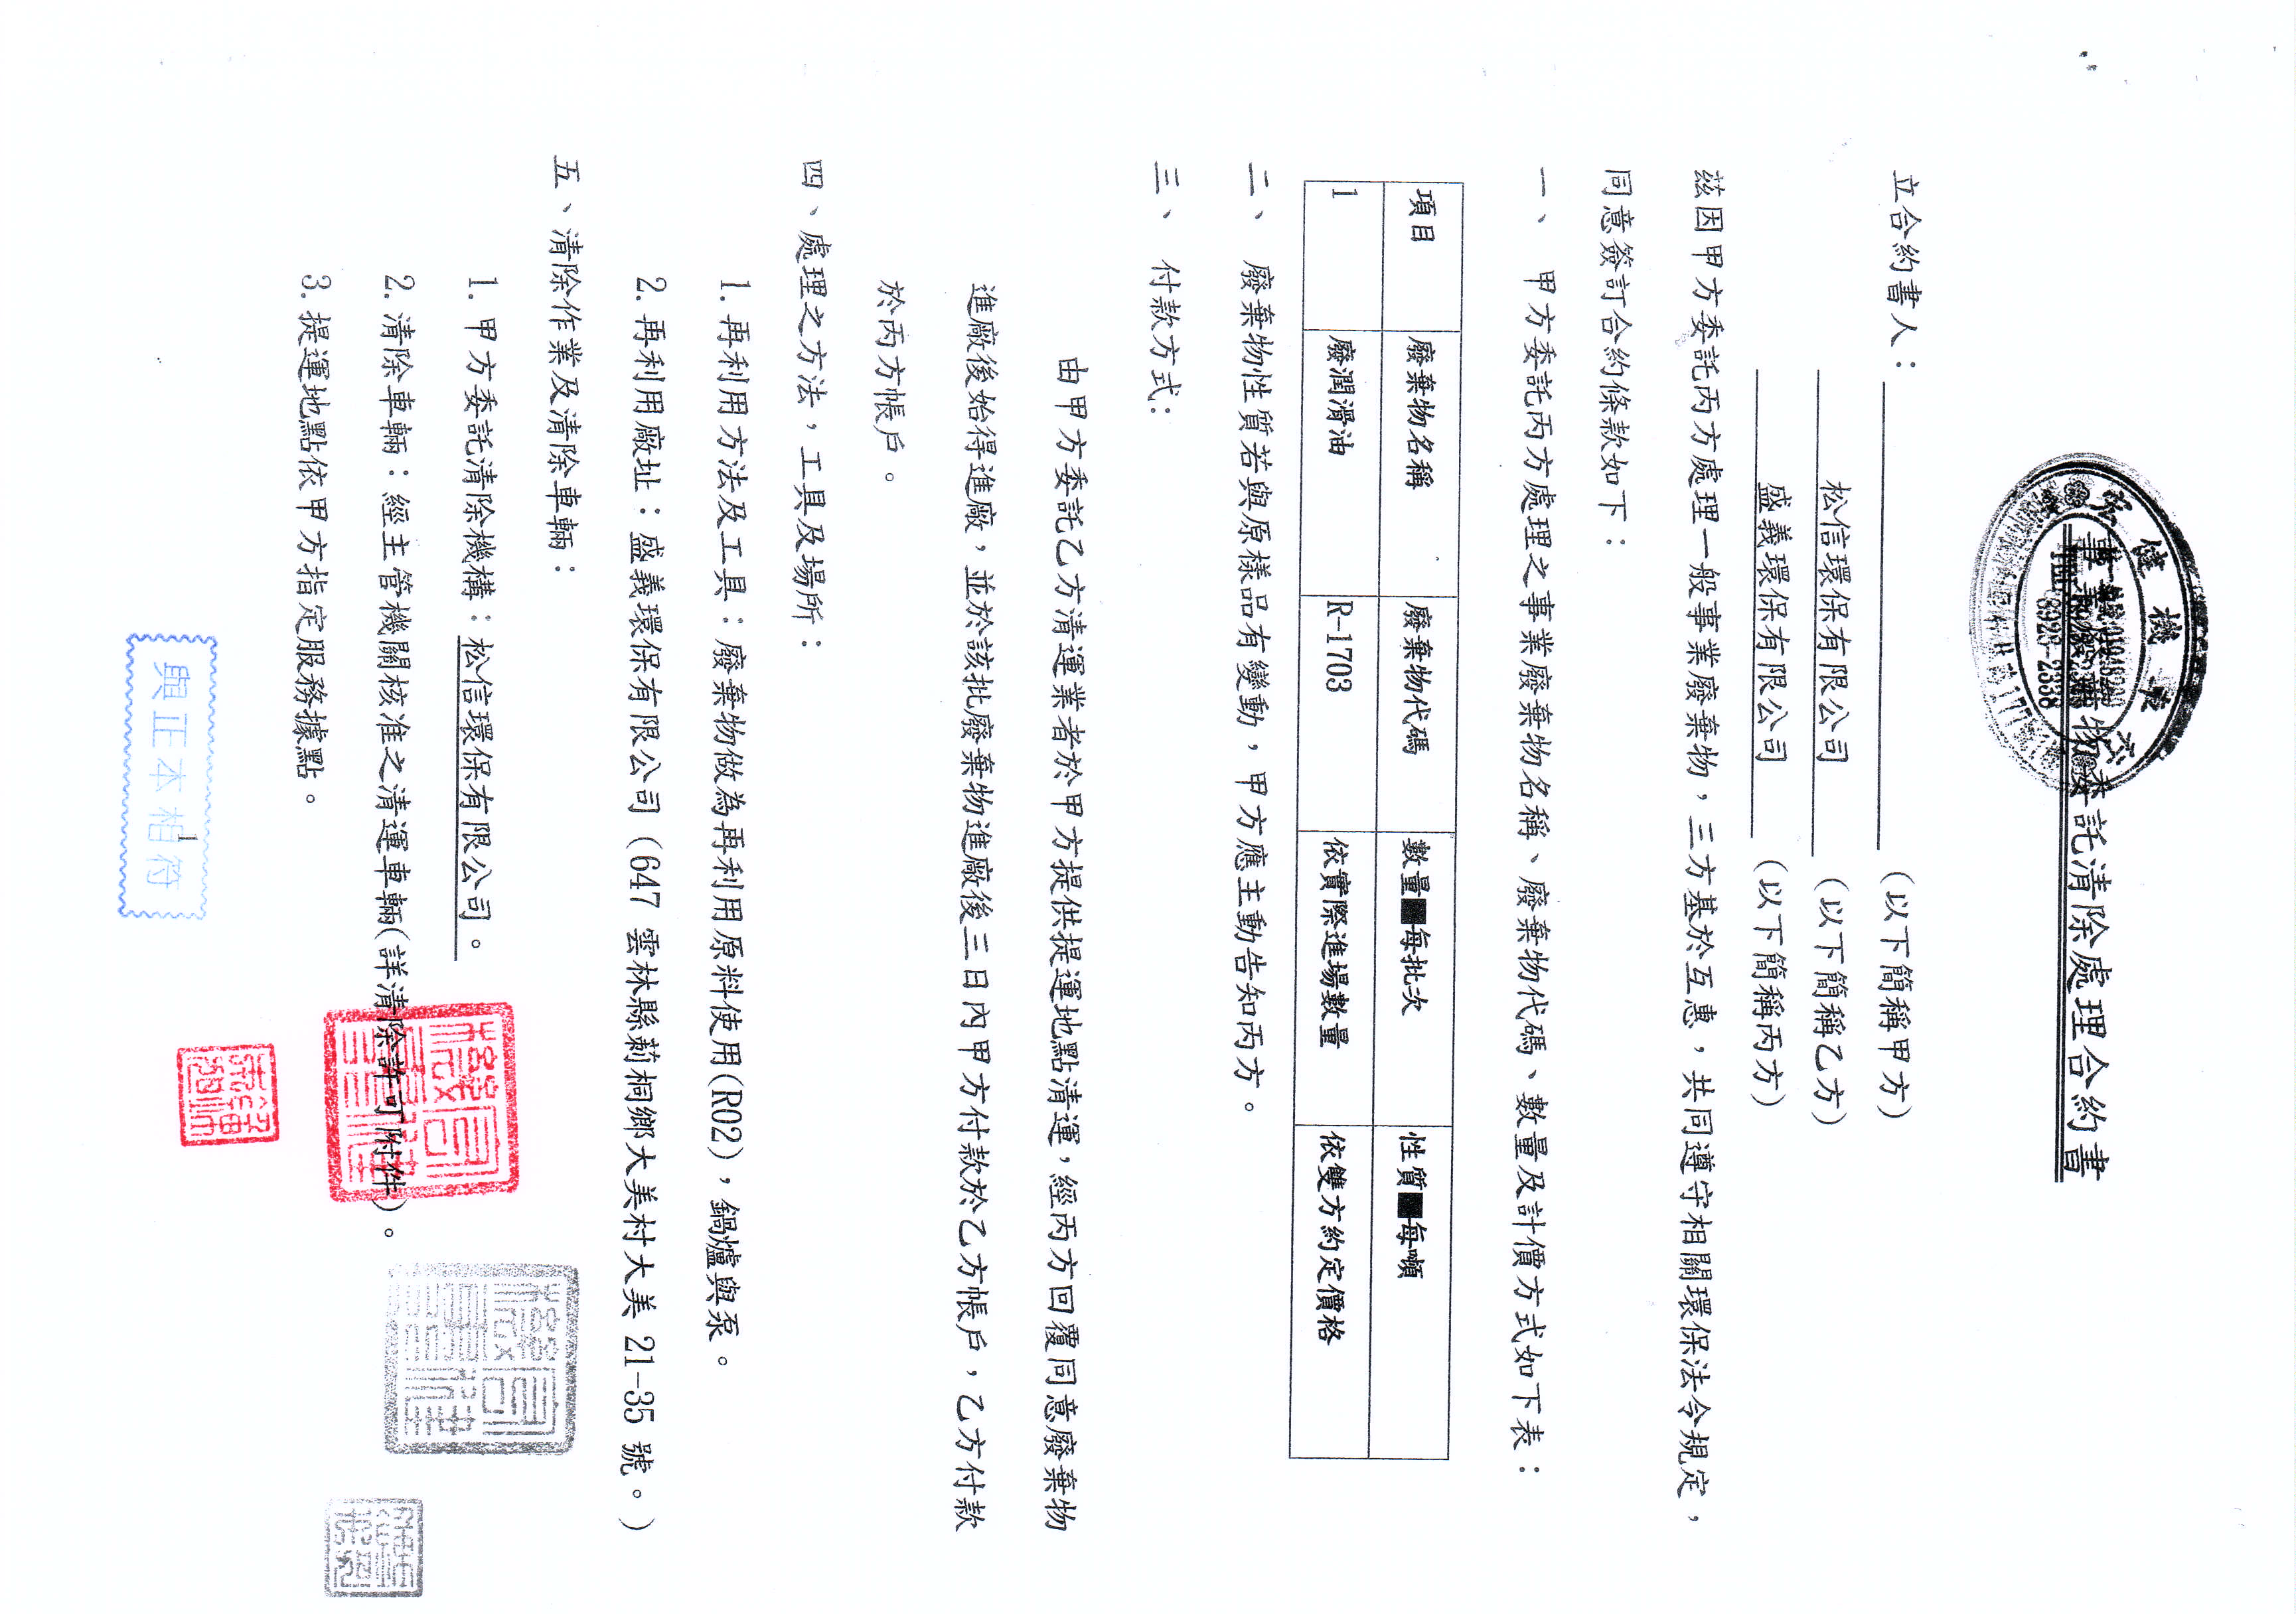 事業廢棄物委託清除處理合約書
立合約書人：　　　　　　（以下簡稱甲方）
松信環保有限公司　（以下簡稱乙方）
盛義環保有限公司　（以下簡稱丙方）
茲因甲方委託丙方處理一般事業廢棄物，三方基於互惠，共同遵守相關環保法令規定，
同意簽訂合約條款如下：
一、甲方委託丙方處理之事業廢棄物名稱、廢棄物代碼、數量及計價方式如下表：
項目　廢棄物名稱　廢棄物代碼　數量■每批次　性質■每噸
1　廢潤滑油　R-1703　依實際進場數量　依雙方約定價格
二、廢棄物性質若與原樣品有變動，甲方應主動告知丙方。
三、付款方式：
由甲方委託乙方清運業者於甲方提供提運地點清運，經丙方回覆同意廢棄物
進廠後始得進廠，並於該批廢棄物進廠後三日內甲方付款於乙方帳戶，乙方付款
於丙方帳戶。
四、處理之方法，工具及場所：
1.再利用方法及工具：廢棄物做為再利用原料使用(R02)，鍋爐與泵。
2.再利用廠址：盛義環保有限公司（647 雲林縣莿桐鄉大美村大美 21-35 號。）
五、清除作業及清除車輛：
1.甲方委託清除機構：松信環保有限公司。
2.清除車輛：經主管機關核准之清運車輛(詳清除許可附件)。
3.提運地點依甲方指定服務據點。
1
與正本相符